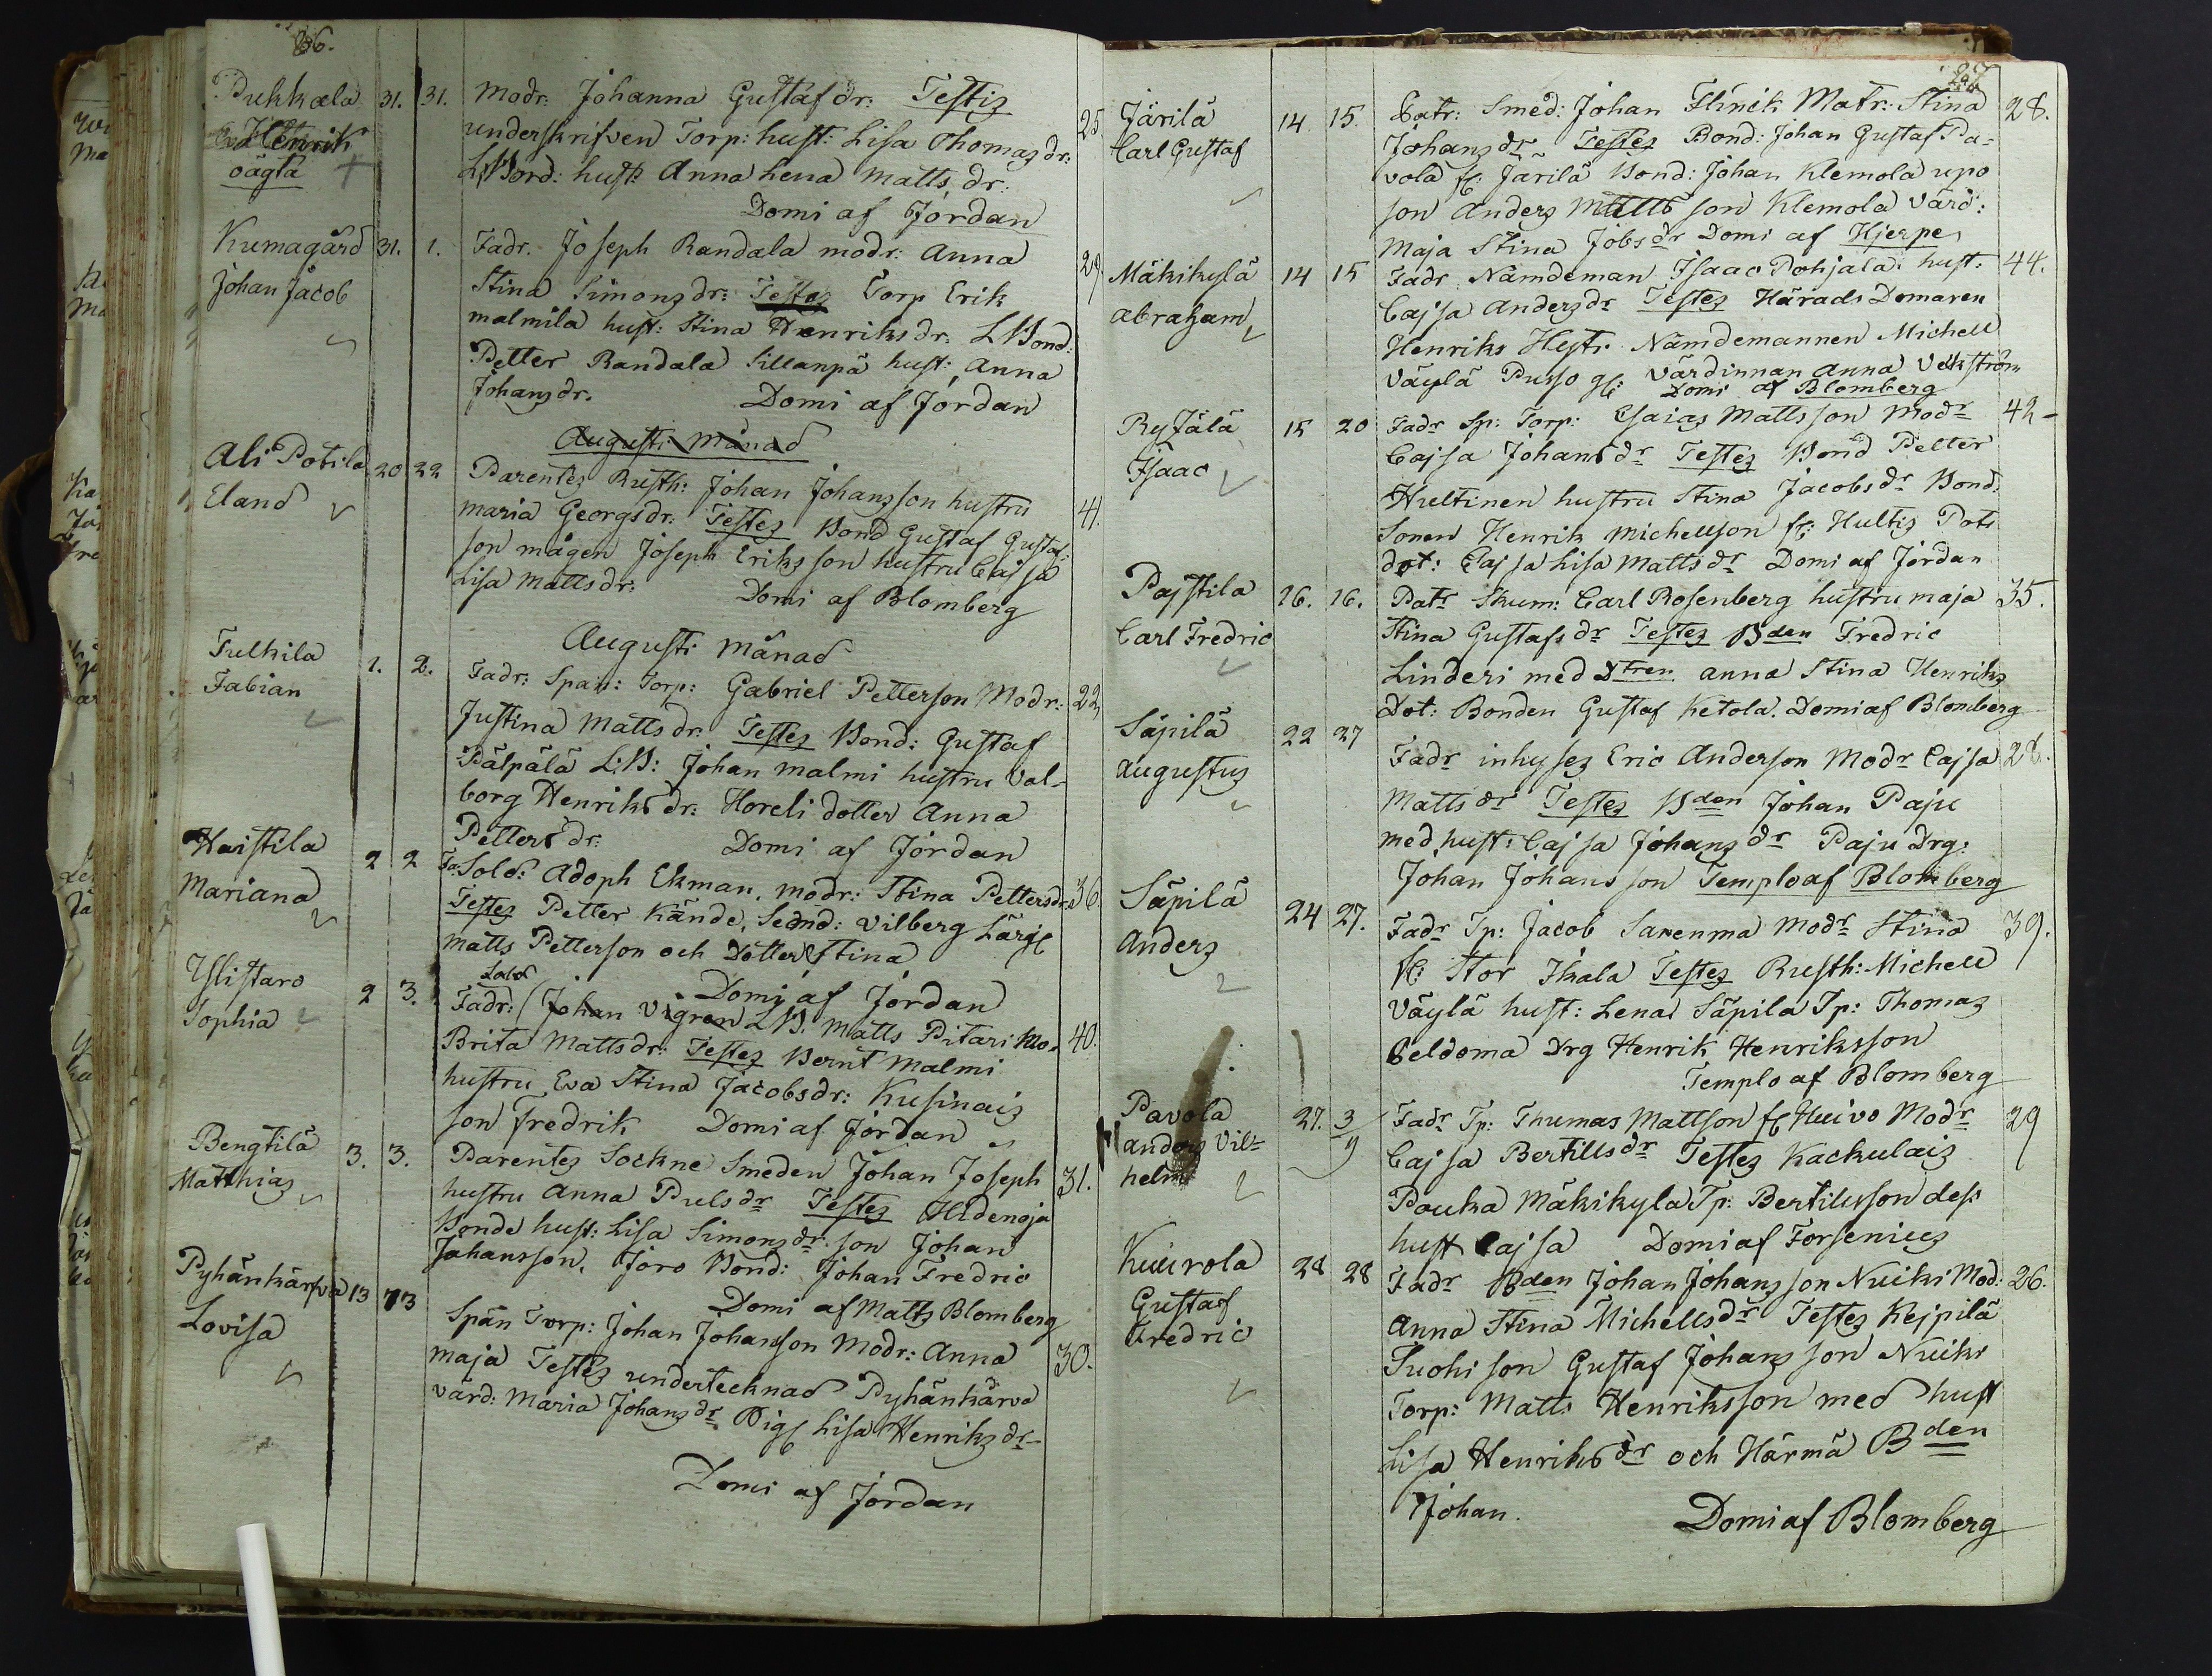 36.
Pukkala 31. 31. Modr: Johanna Gustafdr: Testis 25
Henrik underskrifven Torp: hust: Lisa Thomasdr:
oägta + LBond: hust: Anna Lena Matts dr:
Domi af Jordan
Kumagård 31. 1. Fadr. Joseph Randala modr: Anna 29.
Johan Jacob Stina Simonsdr: Testes Torp Erik
malmila hust: Stina Henriksdr: LBond:
Petter Randala Sillanpä hust: Anna
Johansdr. Domi af Jordan
Augusti månad
Ali Potila 20 22 Parentes Rusth: Johan Johansson hustru 41.
Eland maria Georgsdr: Testes Bond Gustaf Gustaf
son mågen Joseph Eriksson hustru Cajsa
Lisa Mattsdr: Domi af Blomberg
Augusti Månad
Fulkila 1. 2. Fadr: Span: Torp: Gabriel Petterson Modr: 22
Fabian Justina Mattsdr: Testes Bond: Gustaf
Pälpälä L:B: Johan malmi hustru Val-
borg Henriksdr: Horeli dotter Anna
Pettersdr: Domi af Jordan
Haistila 2 2 Fa: Sold: Adoph Ekman, modr: Stina Pettersdr 36
Mariana Testes Petter Kände, Vilberg
Matts Petterson och Dotter Stina
Domi af Jordan
Ylistaro 2 3. Fadr: Sold (Johan Vigren LB. Matts Pitari Mo. 40.
Sophia Brita Mattsdr: Testes Bernt Malmi
hustru Eva Stina Jacobsdr: Kusinais
son Fredrik Domi af Jordan
Bengtilä 3. 3. Parentes Sockne Smeden Johan Joseph 31.
Matthias hustru Anna Pulsdr Testes Hidenoja
Bonde hust: Lisa Simonsdr son Johan
Johansson. Joro Bond: Johan Fredric
Domi af Matts Blomberg
Pyhänkärwa 13 13 Spän Torp: Johan Johanson Modr: Anna 30.
Lovisa maja Testes undertecknad Pyhänkärwa
värd: Maria Johansdr Pig Lisa Henriksdr
Domi af Jordan
37
Järilä 14. 15. Patr: Smed: Johan Flinck Matr: Stina 28.
Carl Gustaf Johansdr Testes Bond: Johan Gustaf Pa-
vola fr: Järilä Bond: Johan Klemola upo
son Anders Matts son Klemola värd:
Maja Stina Jobsdr Domi af Hjerpe
Mäkikylä 14 15 Fadr Nämdeman Isaac Pohjala hust: 44.
abraham Cajsa Andersdr Testes Härads Domaren
Henriks Hest: Nämdemannen Michell
Väylä Pusso gl: värdinnan Anna Vekström
Domi af Blomberg
Ryjälä 15 20 Fadr Sp: Torp: Esaias Mattsson Modr 42
Isaac Cajsa Johansdr Testes Bond Petter
Hultinen hustru Stina Jacobsdr Bond:
Sonen Henrik Michellson fr: Hultis Pots
dot: Cajsa Lisa Mattsdr Domi af Jordan
Pajstila 16. 16. Patr Skum: Carl Rosenberg hustru maja 35.
Carl Fredric Stina Gustafsdr Testes Bden Fredric
Linderi med Dtren anna Stina Henriks
Dot: Bonden Gustaf Ketola. Domi af Blomberg
Säpilä 22 27 Fadr inhyses Eric Anderson Modr Cajsa 28.
Augustus Mattsdr Testes Bden Johan Paju
med hust: Cajsa Johansdr Paju Drg:
Johan Johansson Templo af Blomberg
Säpilä 24 27. Fadr Tp: Jacob Sanenma Modr Stina 39.
Anders fr: Stor Ikala Testes Rusth: Michell
Väylä hust: Lena Säpila Tp: Thomas
Peldoma Drg Henrik Henriksson
Templo af Blomberg
Pavola 27. 3/9 Fadr Tp: Thumas Mattson fr Huivo Modr 29
anders Vil- Cajsa Bertillsdr Testes Kackulais
helm Pauka Mäkikyla Tp: Bertillsson dess
hust Cajsa Domi af Forsenius
Kuurola 28 28 Fadr Bden Johan Johansson Nuiki Mod: 26.
Gustaf Anna Stina Michellsdr Testes Kejpilä
Fredric Suoki son Gustaf Johansson Nuiki
Torp: Matts Henriksson med hust
Lisa Henriksdr och Härmä Bden
Johan. Domi af Blomberg